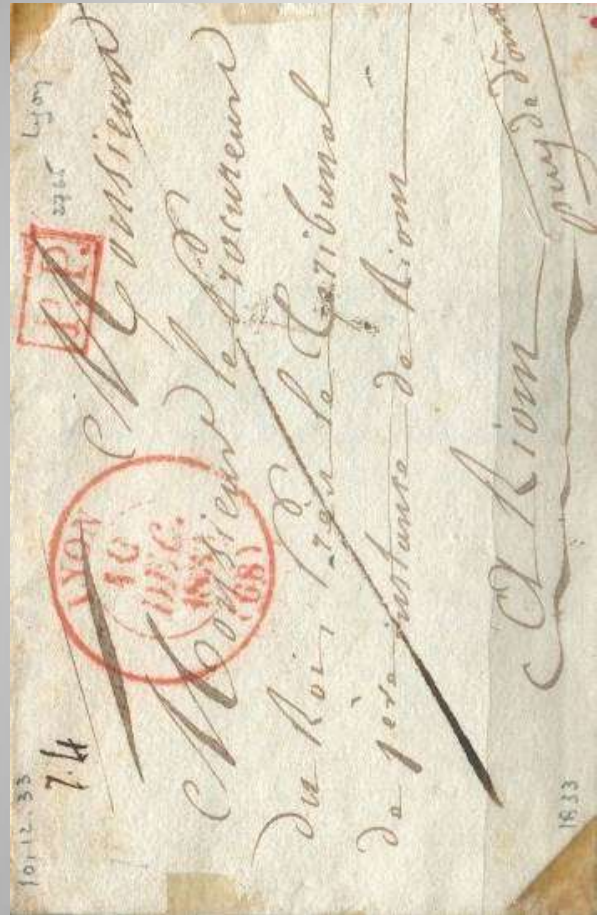 10.12.33
7.4
LYON
10
DEC.
1833
(68)
P.P.
2765 Lyon
Monsieur
Monsieur le Procureur
du Roi, Près le Tribunal
de 1ère instance de Riom
A Riom
puy de Dôme
1833